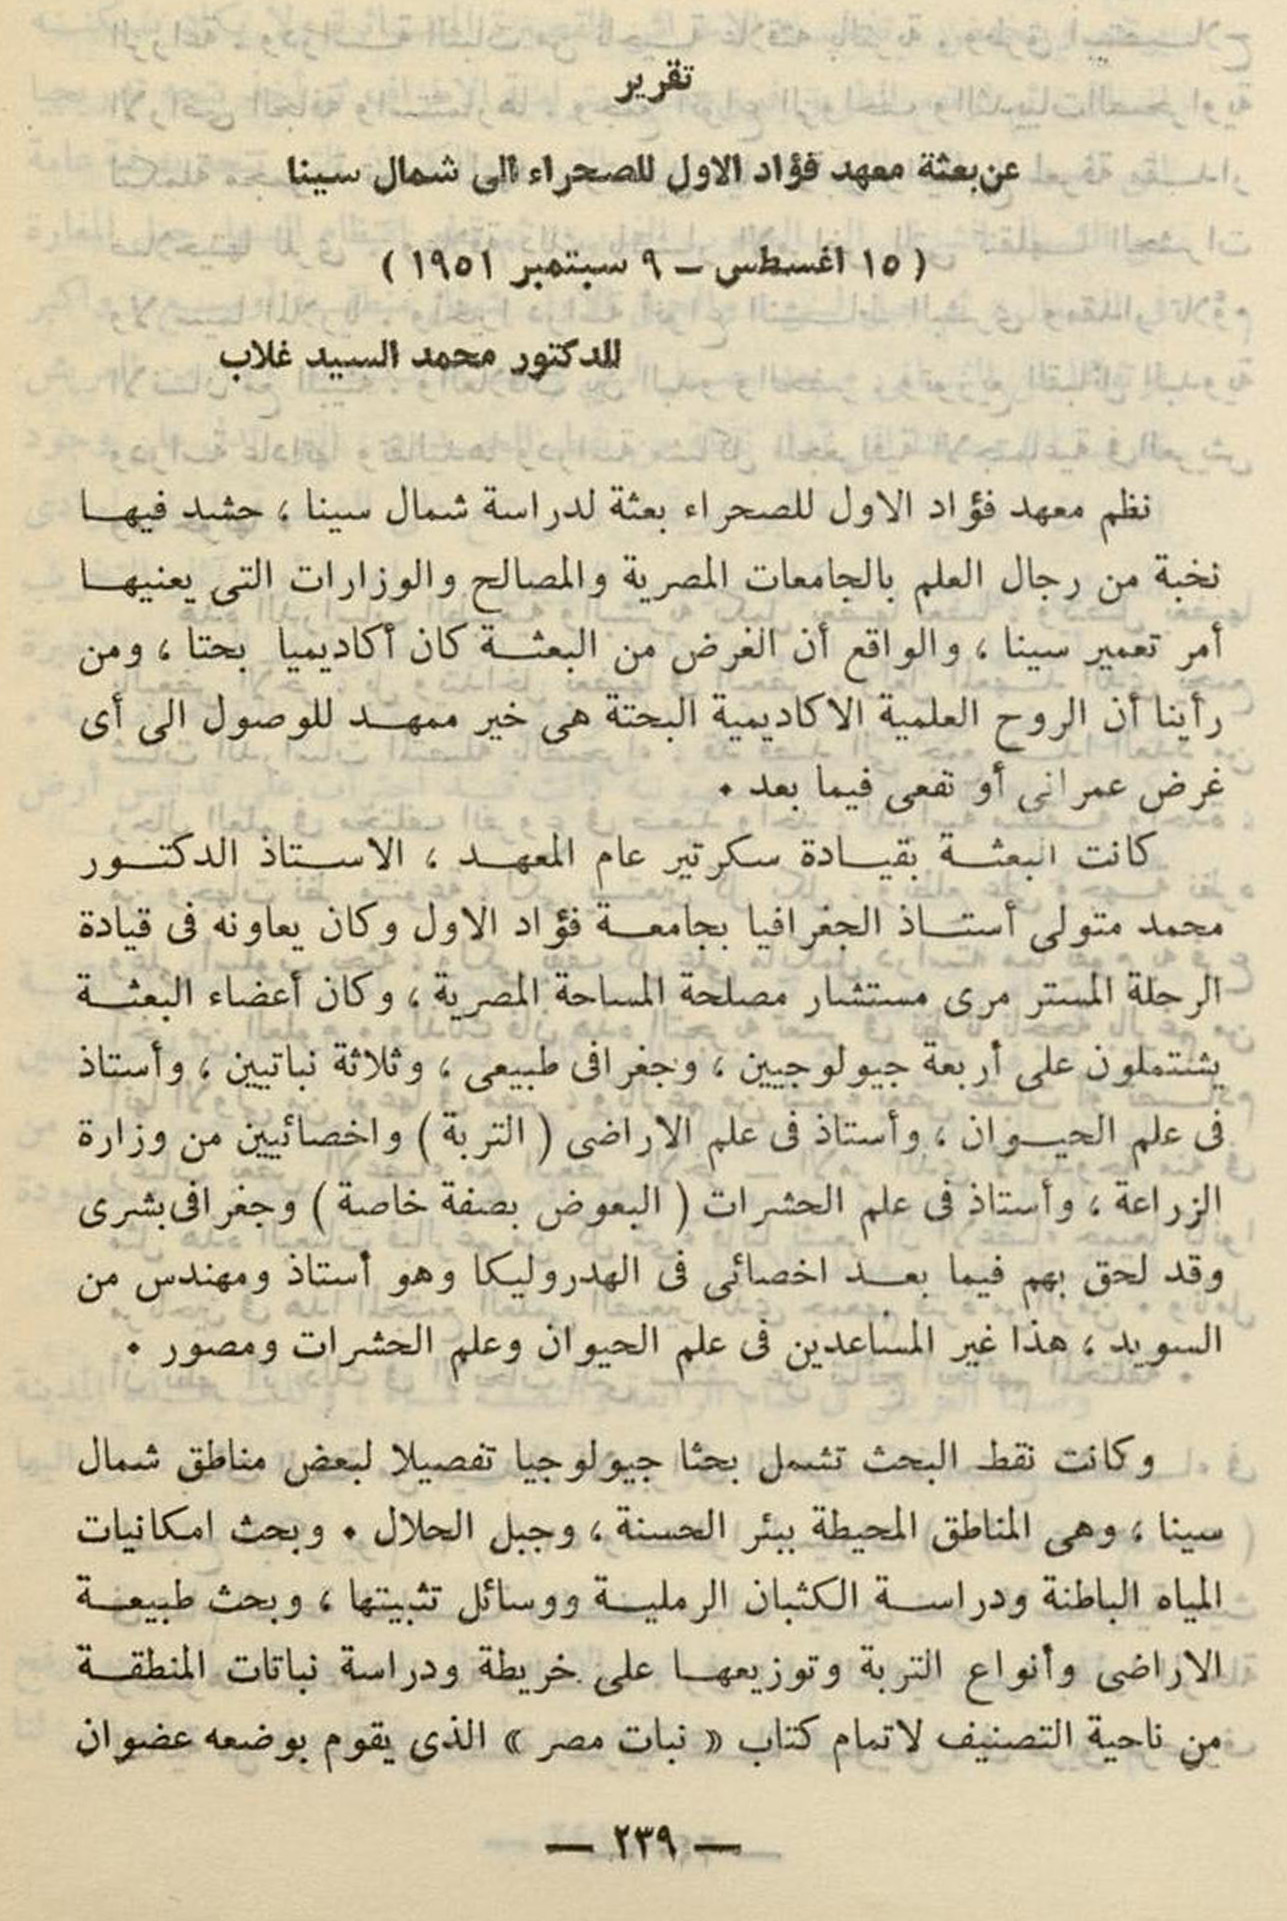 تقرير
عن بعثة معهد فؤاد الاول للصحراء الى شمال سينا
( ١٥ اغسطس — ٩ سبتمبر ١٩٥١ )
للدكتور محمد السيد غلاب
نظم معهد فؤاد الاول للصحراء بعثة لدراسة شمال سينا ، حشد فيها
نخبة من رجال العلم بالجامعات المصرية والمصالح والوزارات التى يعنيها
أمر تعمير سينا ، والواقع أن الغرض من البعثة كان أكاديميا بحتا ، ومن
رأينا أن الروح العلمية الاكاديمية البحتة هى خير ممهد للوصول الى أى
غرض عمرانى أو تفعى فيما بعد ٠
كانت البعثة بقيادة سكرتير عام المعهد ، الاستاذ الدكتور
محمد متولى أستاذ الجغرافيا بجامعة فؤاد الاول وكان يعاونه فى قيادة
الرحلة المستر مرى مستشار مصلحة المساحة المصرية ، وكان أعضاء البعثة
يشتملون على أربعة جيولوجيين ، وجغرافى طبيعى ، وثلاثة نباتيين ، وأستاذ
فى علم الحيوان ، وأستاذ فى علم الاراضى ( التربة ) واخصائيين من وزارة
الزراعة ، وأستاذ فى علم الحشرات ( البعوض بصفة خاصة ) وجغرافى بشرى
وقد لحق بهم فيما بعد اخصائى فى الهدروليكا وهو أستاذ ومهندس من
السويد ، هذا غير المساعدين فى علم الحيوان وعلم الحشرات ومصور ٠
وكانت نقط البحث تشمل بحثا جيولوجيا تفصيلا لبعض مناطق شمال
سينا ، وهى المناطق المحيطة ببئر الحسنة ، وجبل الحلال ٠ وبحث امكانيات
المياه الباطنة ودراسة الكثبان الرملية ووسائل تثبيتها ، وبحث طبيعة
الاراضى وأنواع التربة وتوزيعها على خريطة ودراسة نباتات المنطقة
من ناحية التصنيف لاتمام كتاب « نبات مصر » الذى يقوم بوضعه عضوان
— ٢٣٩ —